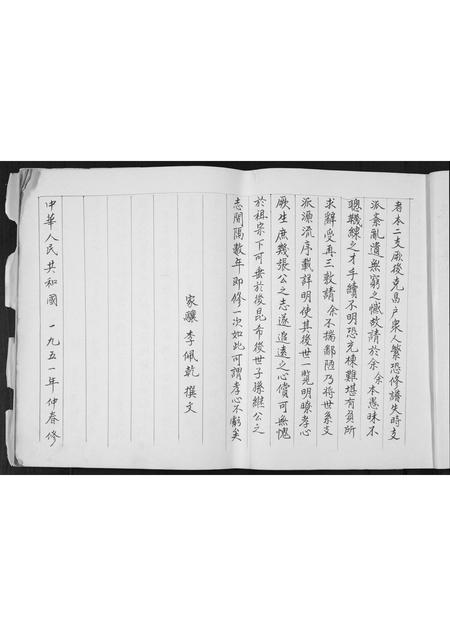 者本二支厥後克昌户衆人繁恐修譜失時支
派紊亂遺無窮之憾故請於余余本愚昧不
聰鞿練之才手續不明恐充棟難堪有負所
求辭受再三敦請余不揣鄙陋乃將世系支
派源流序載詳明使其後世一覽明瞭孝心
厥生庶幾張公之志遂追遠之心償可無愧
於祖宗下可垂於後昆希後世子孫繼公之
志間隔數年即修一次如此可謂孝心不虧矣
家驥 李佩乾 撰文
中華人民共和國 一九五一年仲春修